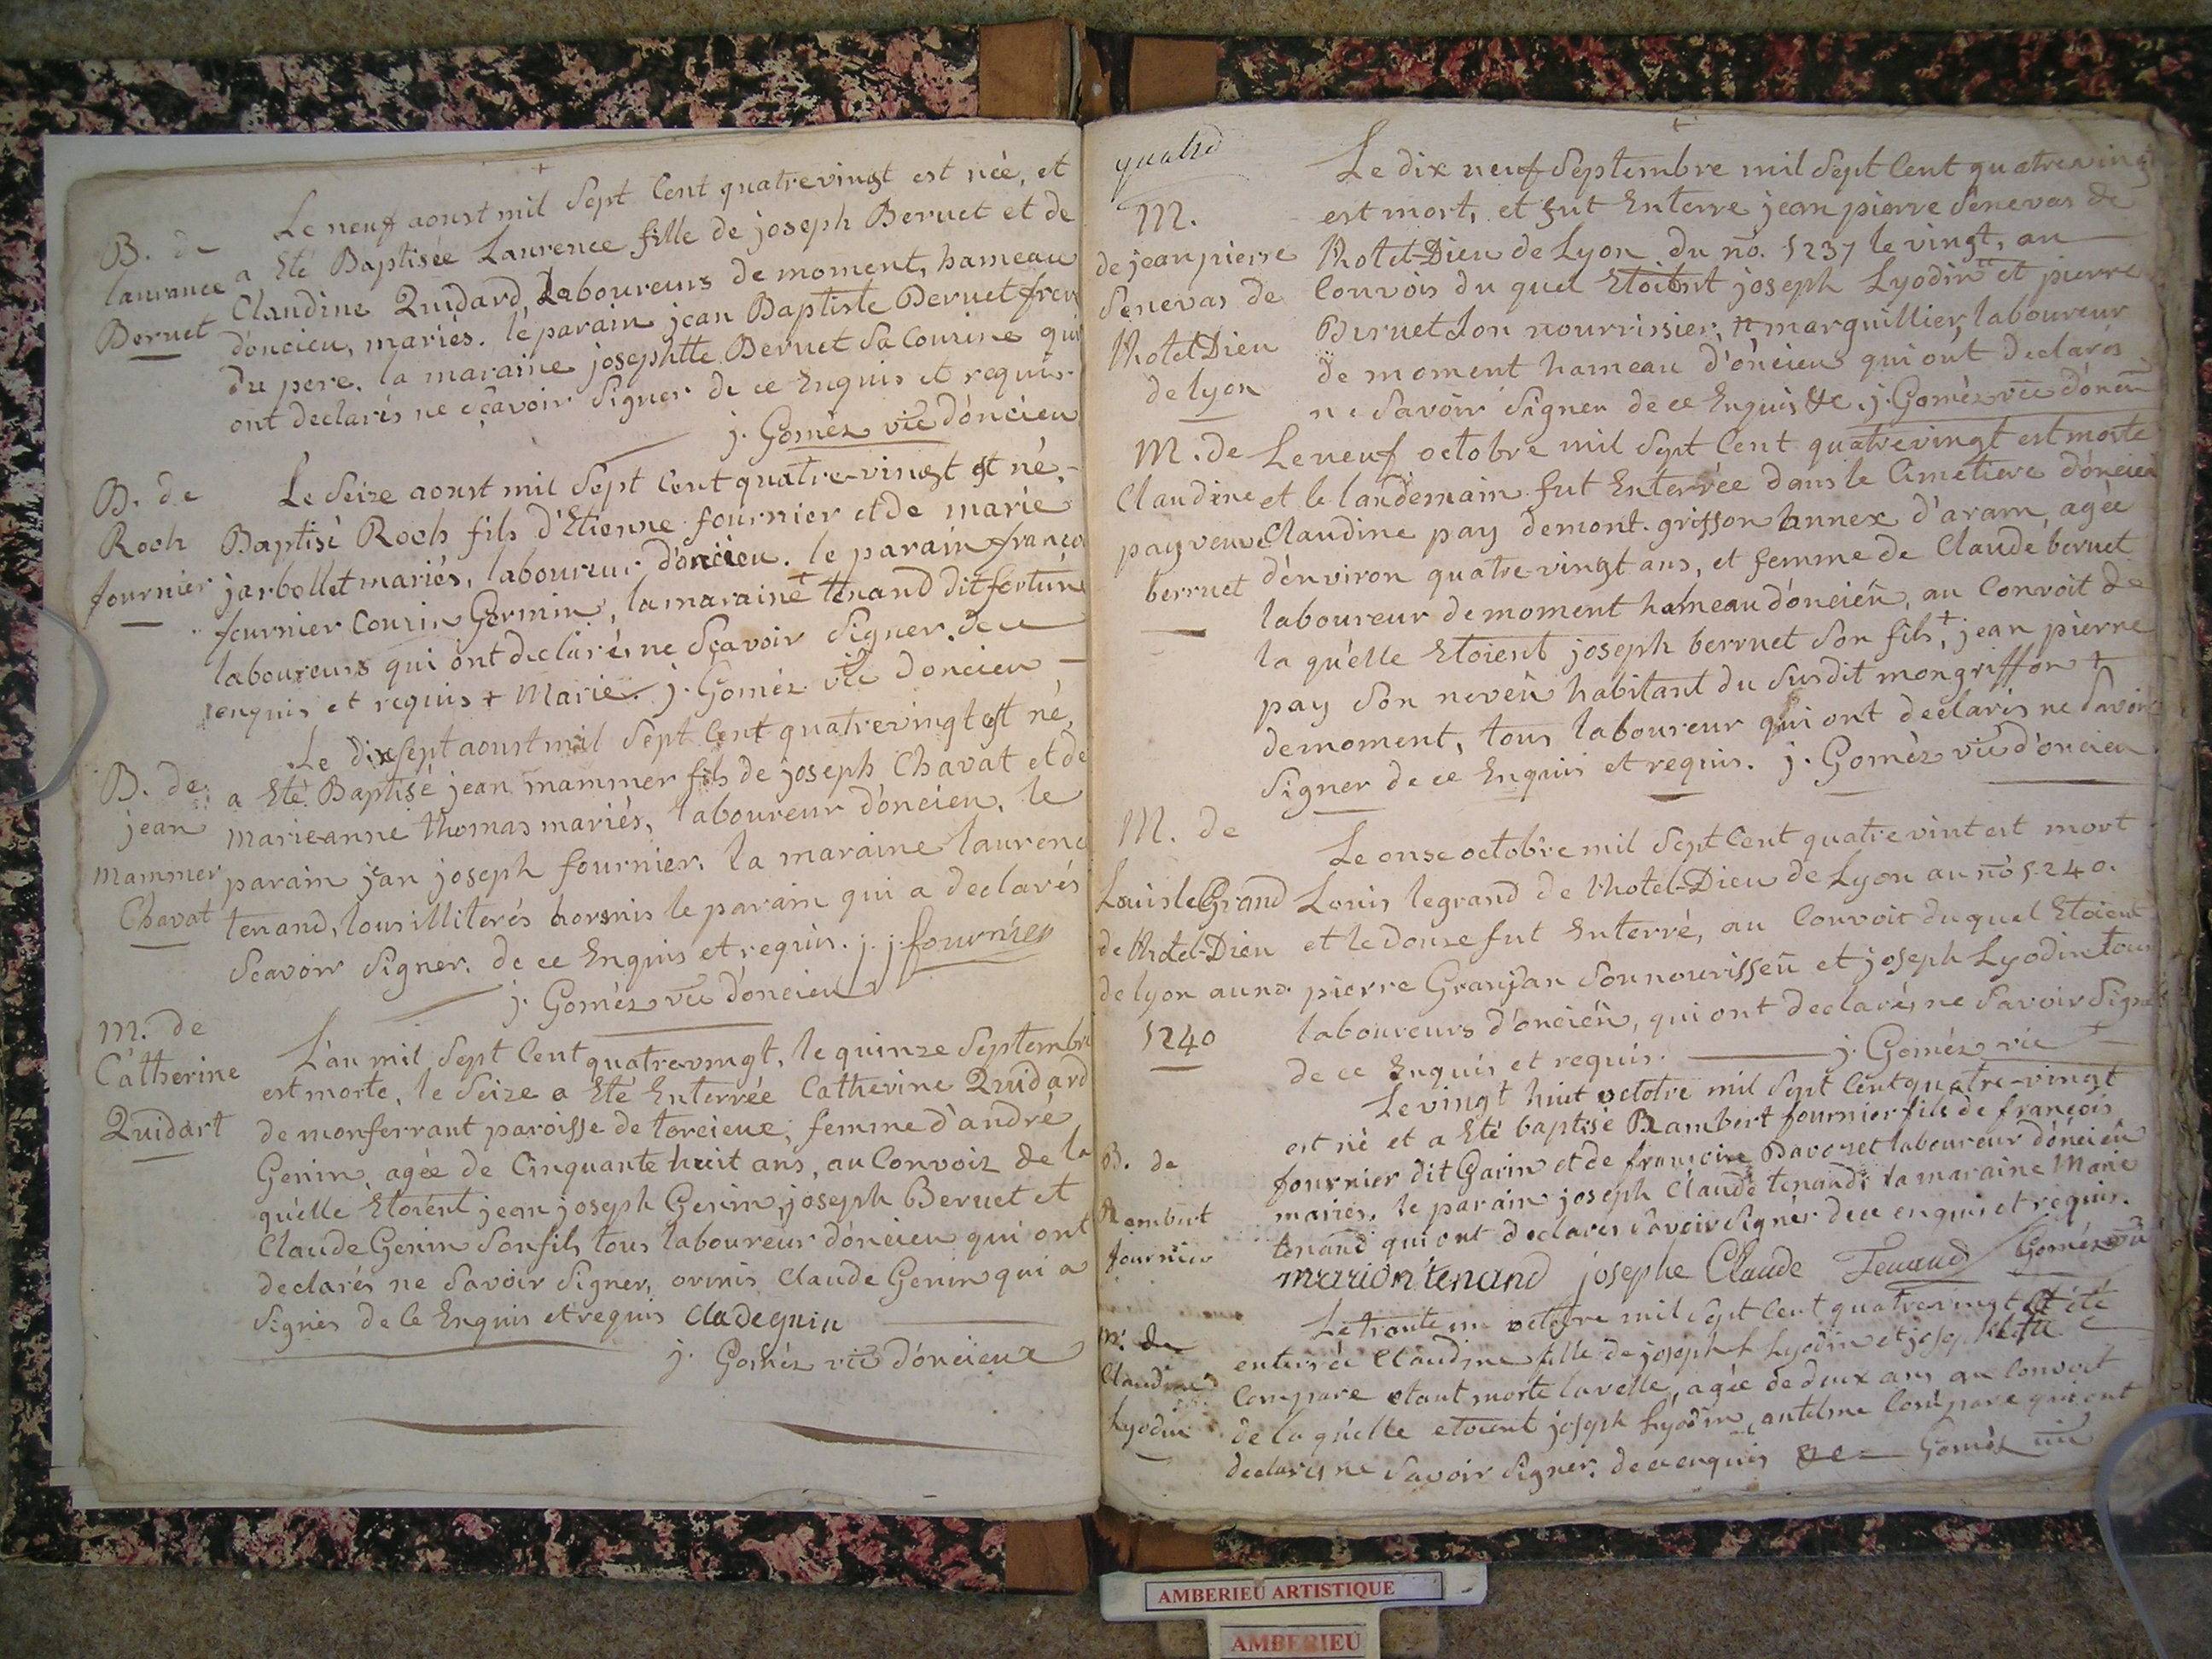 Le neuf aoust mil Sept Cent quatrevingt est née, et
B. de
laurance
Beruet
a Eté Baptisée Laurence fille de joseph Beruet et de
Claudine Quidard, Laboureurs de moment, hameau
d'oncieu, mariés. le parain jean Baptiste Beruet frere
du pere, la maraine josephtte Beruet Sa Cousine qui
ont declarés ne sçavoir Signer de ce Enquis et requis
j. Gomés vic d'oncieu
B. de
Roch
fournier
Le Seize aoust mil Sept Cent quatre-vingt est né,
Baptisé Roch fils d'Etienne fournier et de marie
jarbollet mariés, laboureur d'oncieu. le parain françois
fournier Cousin Germin, la maraine + tenand dit fortuné
laboureurs qui ont declarés ne Sçavoir Signer. de ce
enquis et requis + Marie. j. Gomés vic d'oncieu
B. de
jean
mammer
Chavat
Le dixsept aoust mil Sept Cent quatrevingt est né,
a Eté Baptisé jean mammer fils de joseph Chavat et de
marieanne thomas mariés, laboureur d'oncieu, le
parain jean joseph fournier, la maraine laurence
tenand, tous illiterés hormis le parain qui a declarés
Scavoir Signer. de ce Enquis et requis. j. j. fournier
j. Gomés vic d'oncieu
M. de
Catherine
Quidart
L'an mil Sept Cent quatrevingt, le quinze Septembre
est morte, le Seize a Eté Enterrée Catherine Quidard
de monferrant paroisse de torcieux, femme d'andré
Genin, agée de Cinquante huit ans, au Convoiz de la
qu'elle Etoient jean joseph Genin, joseph Beruet et
Claude Genin Son fils tous laboureur d'oncieu qui ont
declarés ne Savoir Signer, ormis Claude Genin qui a
Signés de le Enquis et requis Clade gnin
j. Gomés vic d'oncieux
quatre
Le dix neuf Septembre mil Sept Cent quatrevingt
M.
de jean pierre
Senevas de
lhotelDieu
de lyon
est mort, et fut Enterre jean pierre Senevas de
lhotel-Dieu de Lyon du no. 5237 le vingt, au
Convois du quel Etoient joseph Lyodin et pierre
Beruet Son nourrissier, marguillier, laboureur
de moment hameau d'oncieu qui ont declarés
ne Savoir Signer de ce Enquis &c. j. Gomés vic d'oncieu
M. de
Claudine
pay veuve
berruet
Le neuf octobre mil Sept Cent quatrevingt est morte
et le landemain fut Enterrée dans le Cimetiere d'oncieu
Claudine pay demont-griffon annex d'aram, agée
d'environ quatre-vingt ans, et femme de Claude beruet
laboureur de moment hameau d'oncieu, au Convoit de
la qu'elle Etoient joseph berruet Son fils +, jean pierre
pay Son neveu habitant du Susdit mongriffon +
demoment, tous laboureur qui ont declarés ne Savoir
Signer de ce Enquis et requis. j. Gomés vic d'oncieu
M. de
Louis le Grand
de lhotel-Dieu
de lyon au no.
5240
Le onse octobre mil Sept Cent quatre vint est mort
Louis legrand de l'hotel-Dieu de Lyon au no 5240.
et le douse fut Enterré, au Convoit duquel Etoient
pierre Granjan Son nourisseu et joseph Lyodin tous
laboureurs d'oncieu, qui ont declarés ne Savoir Signer
de ce Enquis et requis. j. Gomés vic
Le vingt huit octobre mil Sept Cent quatre-vingt
B. de
Rambert
fournier
est né et a Eté baptisé Rambert fournier fils de françois
fournier dit Garin et de françoise Davoret laboureur d'oncieu
mariés, le parain joseph Claude tenand, la maraine Marie
tenand qui ont declarés Savoir Signer de ce enquis et requis.
marion tenand josephe Claude Tenand Gomés vic
M. de
Claudine
Lyodin
Le trante un octobre mil Sept Cent quatrevingt a été
enterrée Claudine fille de joseph Lyodin et josephtte
Compare etant morte laveille, agée de deux ans au Convoit
de la qu'elle etoient joseph Lyodin, antelme Compare qui ont
declarés ne Savoir Signer. de ce enquis &c Gomés vic
AMBERIEU ARTISTIQUE
AMBERIEU